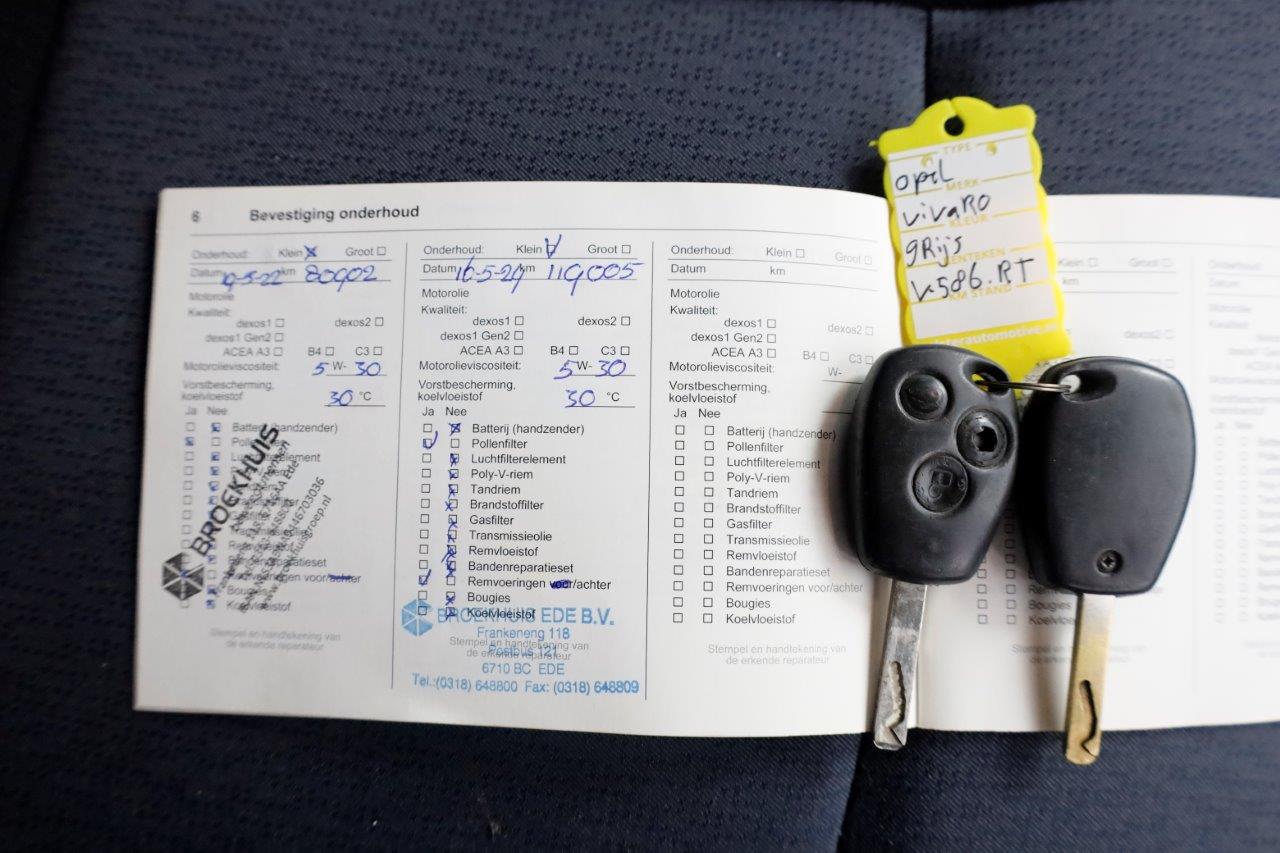 6 Bevestiging onderhoud
Onderhoud: Klein Groot
Datum 19-5-22 km 80902
Motorolie
Kwaliteit:
dexos1 dexos2
dexos1 Gen2
ACEA A3 B4 C3
Motorolieviscositeit: 5 W- 30
Vorstbescherming,
koelvloeistof 30 °C
Ja Nee
Batterij (handzender)
BROEKHUIS
Onderhoud: Klein Groot
Datum 16-5-24 km 119005
Motorolie
Kwaliteit:
dexos1 dexos2
dexos1 Gen2
ACEA A3 B4 C3
Motorolieviscositeit: 5 W- 30
Vorstbescherming,
koelvloeistof 30 °C
Ja Nee
Batterij (handzender)
Pollenfilter
Luchtfilterelement
Poly-V-riem
Tandriem
Brandstoffilter
Gasfilter
Transmissieolie
Remvloeistof
Bandenreparatieset
Remvoeringen voor/achter
Bougies
Koelvloeistof
BROEKHUIS EDE B.V.
Frankeneng 118
Stempel en handtekening van
de erkende reparateur
Postbus 121
6710 BC EDE
Tel.:(0318) 648800 Fax: (0318) 648809
Onderhoud: Klein Groot
Datum km
Motorolie
Kwaliteit:
dexos1 dexos2
dexos1 Gen2
ACEA A3 B4 C3
Motorolieviscositeit: W-
Vorstbescherming,
koelvloeistof
Ja Nee
Batterij (handzender)
Pollenfilter
Luchtfilterelement
Poly-V-riem
Tandriem
Brandstoffilter
Gasfilter
Transmissieolie
Remvloeistof
Bandenreparatieset
Remvoeringen voor/achter
Bougies
Koelvloeistof
Stempel en handtekening van
de erkende reparateur
TYPE
opel
MERK
vivaRO
KLEUR
gRijs
KENTEKEN
V586.RT
KM STAND